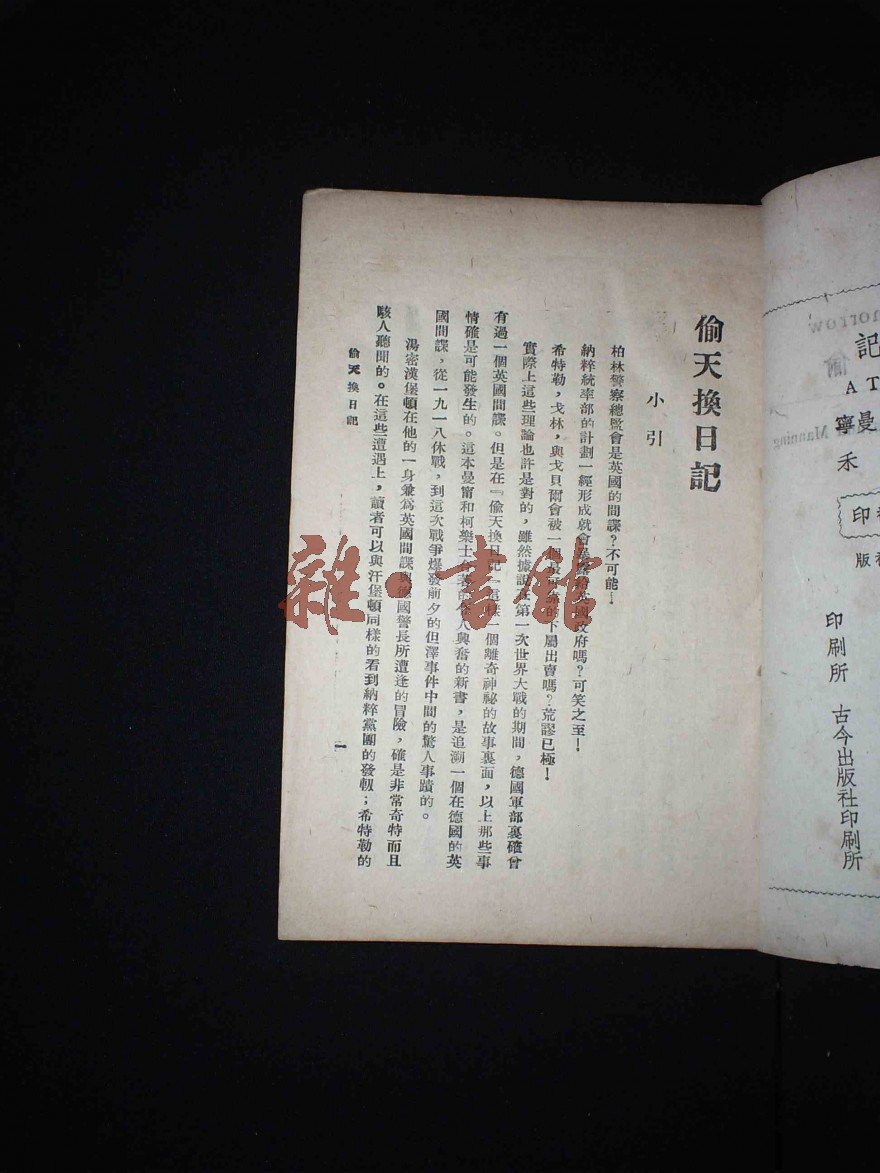 偷天換日記
小引
柏林警察總監會是英國的間諜?不可能!
納粹統率部的計劃一經形成就會暴露給英國政府嗎?可笑之至!
希特勒,戈林,與戈貝爾會被一個最可靠的下屬出賣嗎?荒謬已極!
實際上這些理論也許是對的,雖然據說在第一次世界大戰的期間,德國軍部裏確曾
有過一個英國間諜。但是在『偷天換日記』這樣一個離奇神祕的故事裏面,以上那些事
情確是可能發生的。這本曼甯和柯樂士合著的令人興奮的新書,是追溯一個在德國的英
國間諜,從一九一八休戰,到這次戰爭爆發前夕的但澤事件中間的驚人事蹟的。
湯密漢堡頓在他的一身兼為英國間諜與德國警長所遭逢的冒險,確是非常奇特而且
駭人聽聞的。在這些遭遇上,讀者可以與汗堡頓同樣的看到納粹黨團的發軔;希特勒的
偷天換日記
一
記
AT
曼
寧
禾
印
版
印刷所 古今出版社印刷所
orrow
Manning
雜·書館